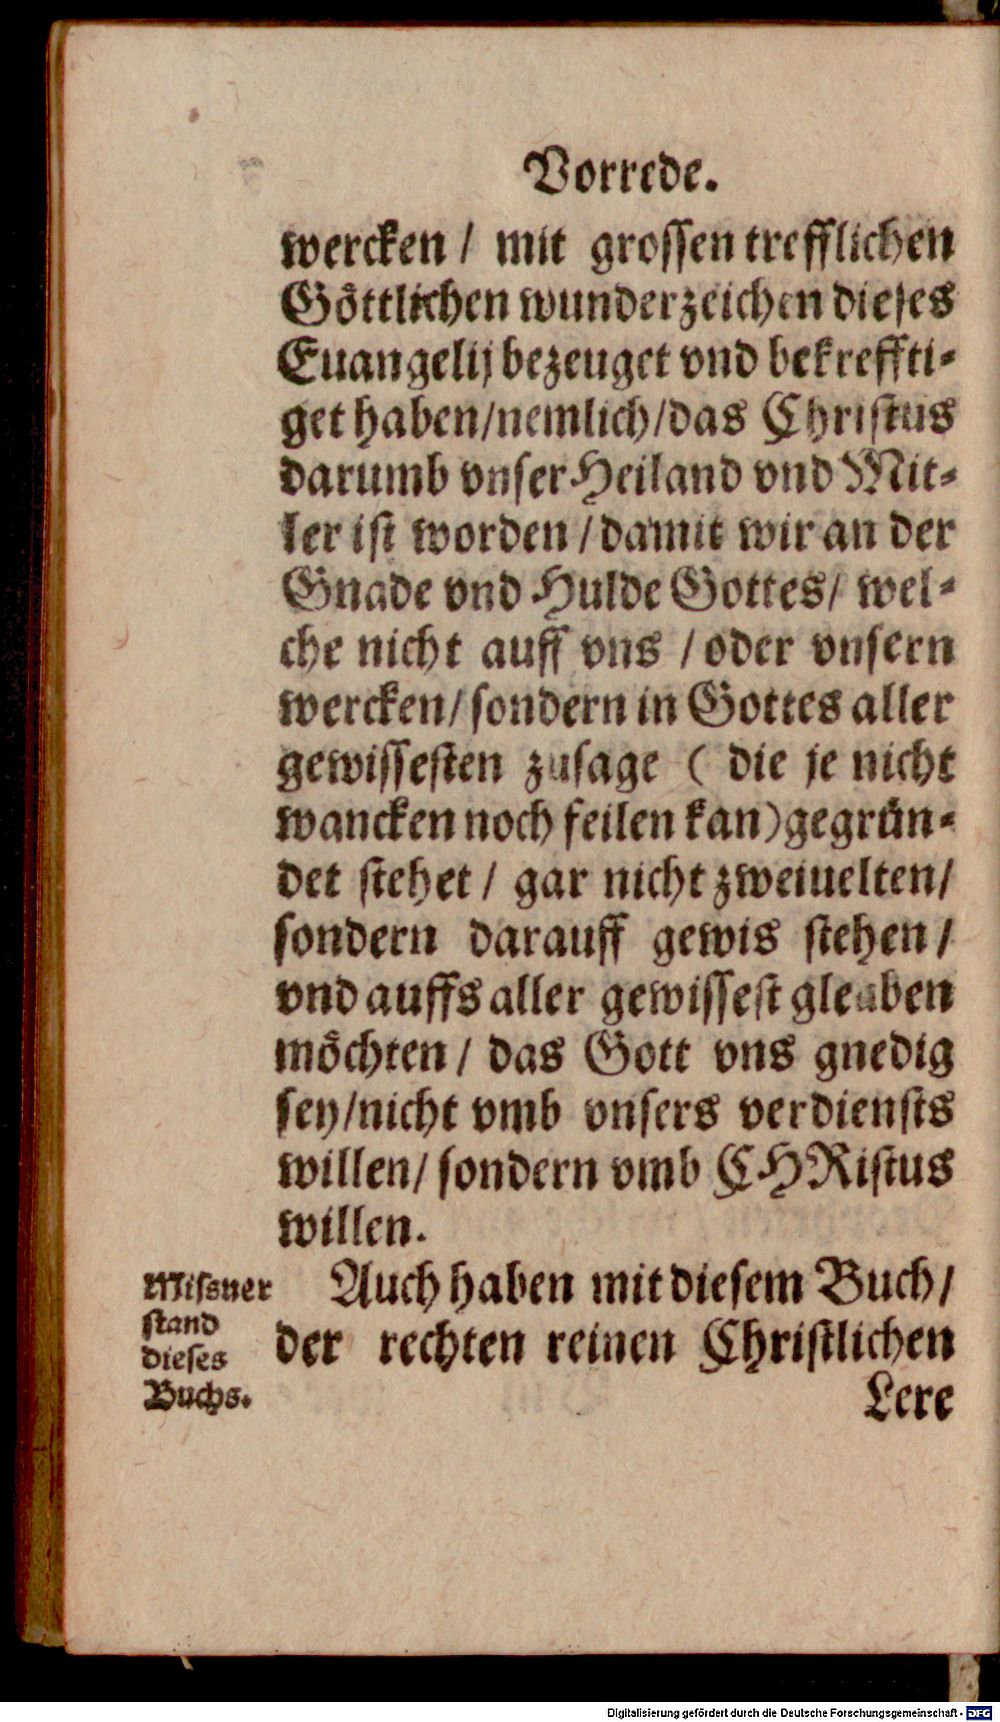 Vorrede.
wercken / mit grossen trefflichen
Göttlichen wunderzeichen dieses
Euangelij bezeuget vnd bekreffti-
get haben/nemlich/das Christus
darumb vnser Heiland vnd Mit-
ler ist worden / damit wir an der
Gnade vnd Hulde Gottes/ wel-
che nicht auff vns / oder vnsern
wercken/ sondern in Gottes aller
gewissesten zusage ( die je nicht
wancken noch feilen kan) gegrün-
det stehet / gar nicht zweiuelten/
sondern darauff gewis stehen /
vnd auffs aller gewissest gleuben
möchten / das Gott vns gnedig
sey/nicht vmb vnsers verdiensts
willen/ sondern vmb CHRistus
willen.
Auch haben mit diesem Buch /
der rechten reinen Christlichen
Lere
Missuer
stand
dieses
Buchs.
Digitalisierung gefördert durch die Deutsche Forschungsgemeinschaft - DFG